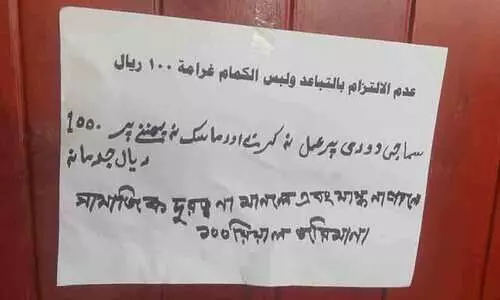 عدم الالتزام بالتباعد ولبس الكمام غرامة ١٠٠ ريال
سماجی دوری پر عمل نہ کرنے اور ماسک نہ پہننے پر 100
ریال جرمانہ
সামাজিক দূরত্ব না মানলে এবং মাস্ক না পরলে
১০০ রিয়াল জরিমানা